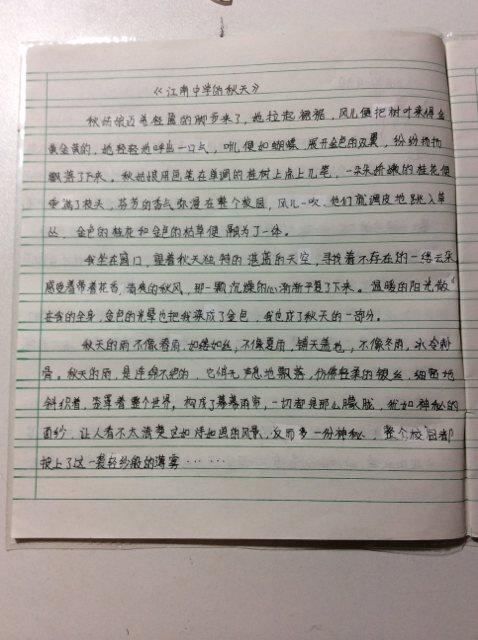 《江南中学的秋天》
秋姑娘迈着轻盈的脚步来了，她拉起裙裾，风儿便把树叶染得金
黄金黄的，她轻轻地呼出一口气，叶儿便如蝴蝶，展开金色的双翼，纷纷扬扬
飘落了下来。秋姑娘用画笔在单调的桂树上点上几笔，一朵朵娇嫩的桂花便
垂满了枝头，芬芳的香气弥漫在整个校园，风儿一吹，他们就调皮地跳入草
丛，金色的桂花和金色的枯草便融为了一体。
我坐在窗口，望着秋天独特的湛蓝的天空，寻找着不存在的一缕云朵
感受着带着花香，清爽的秋风，那一颗沉燥的心渐渐平复了下来。温暖的阳光散
在我的全身，金色的光晕也把我染成了金色，我也成了秋天的一部分。
秋天的雨不像春雨，如缕如丝，不像夏雨，铺天盖地，不像冬雨，冰冷刺
骨。秋天的雨，是连绵不绝的，它悄无声息地飘落，仿佛轻柔的银丝，细密地
斜织着，笼罩着整个世界，构成了幕幕雨帘，一切都是那么朦胧，犹如神秘的
面纱，让人看不太清楚这如诗如画的风景，反而多一份神秘，整个校园都
披上了这一袭轻纱般的薄雾……